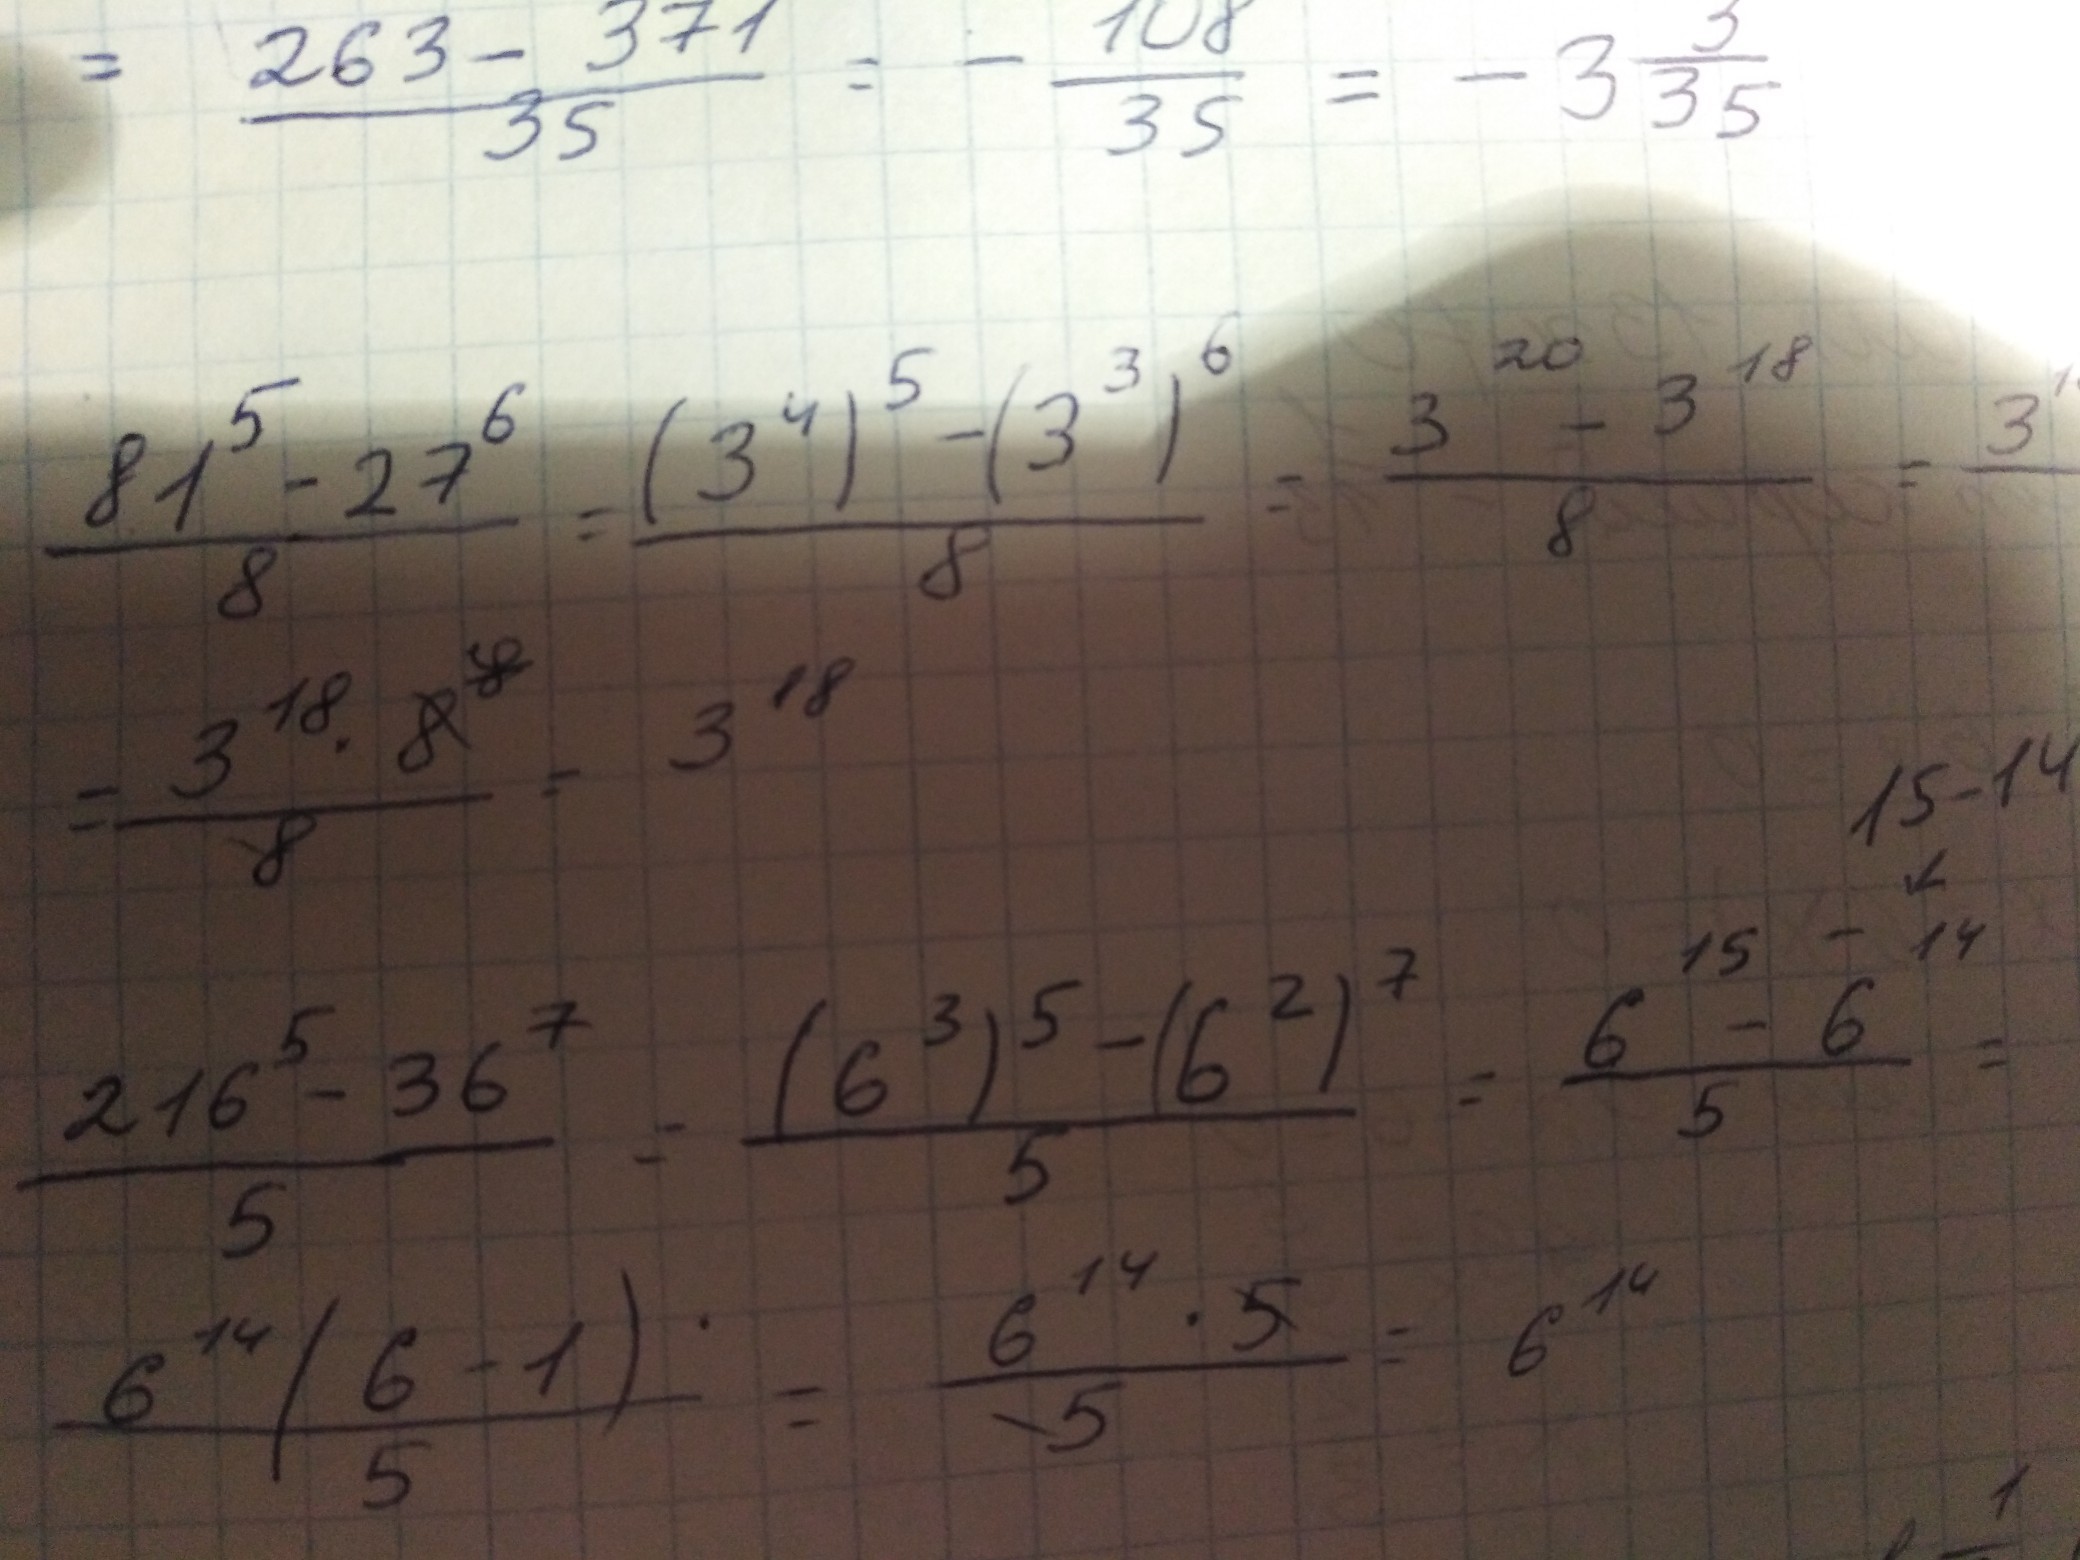 = \frac{263 - 371}{35} = - \frac{108}{35} = - 3 \frac{3}{35}
\frac{81^5 - 27^6}{8} = \frac{(3^4)^5 - (3^3)^6}{8} = \frac{3^{20} - 3^{18}}{8} = 3
= \frac{3^{18} \cdot 8}{8} = 3^{18}
15-14
\frac{216^5 - 36^7}{5} = \frac{(6^3)^5 - (6^2)^7}{5} = \frac{6^{15} - 6^{14}}{5} =
\frac{6^{14} (6 - 1)}{5} = \frac{6^{14} \cdot 5}{5} = 6^{14}
1